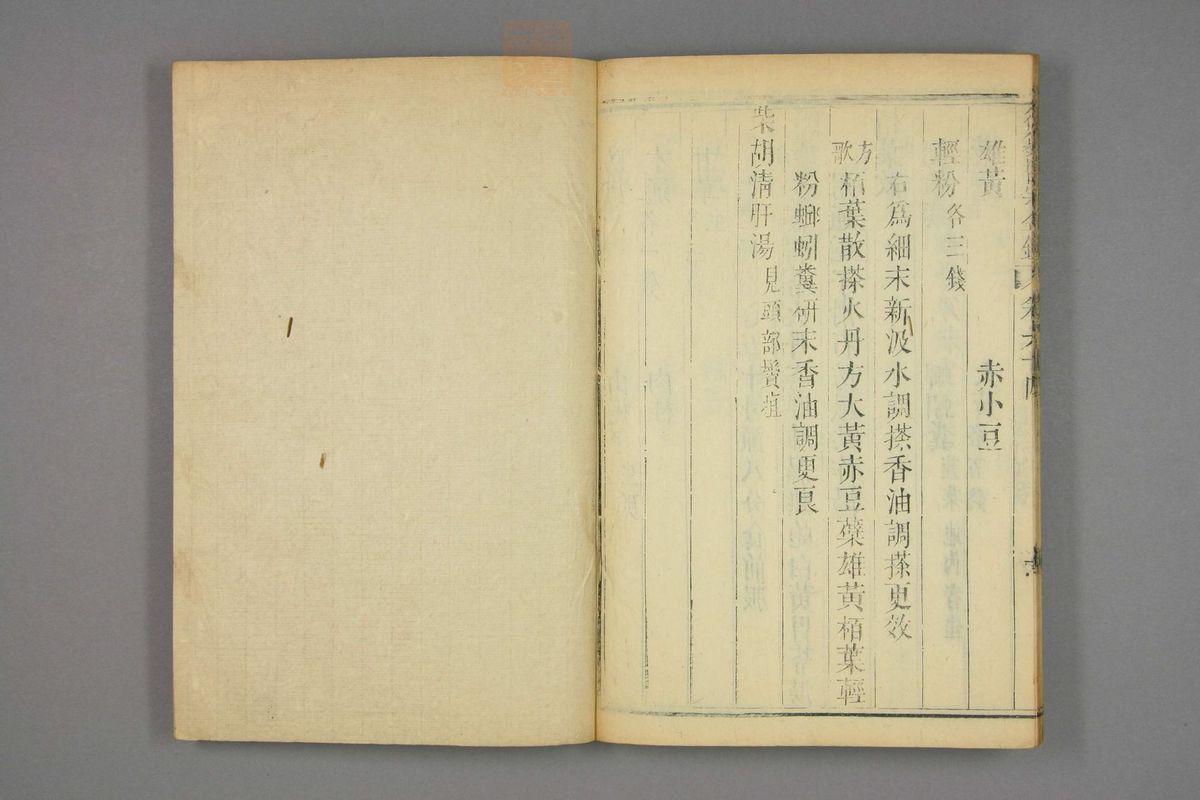 雄黃 赤小豆
輕粉各三錢
右爲細末新汲水調搽香油調搽更效
方歌 栢葉散搽火丹方大黃赤豆蘗雄黃栢葉輕
粉螂蚓糞研末香油調更良
柴胡清肝湯見頭部鬢疽
卷六十四